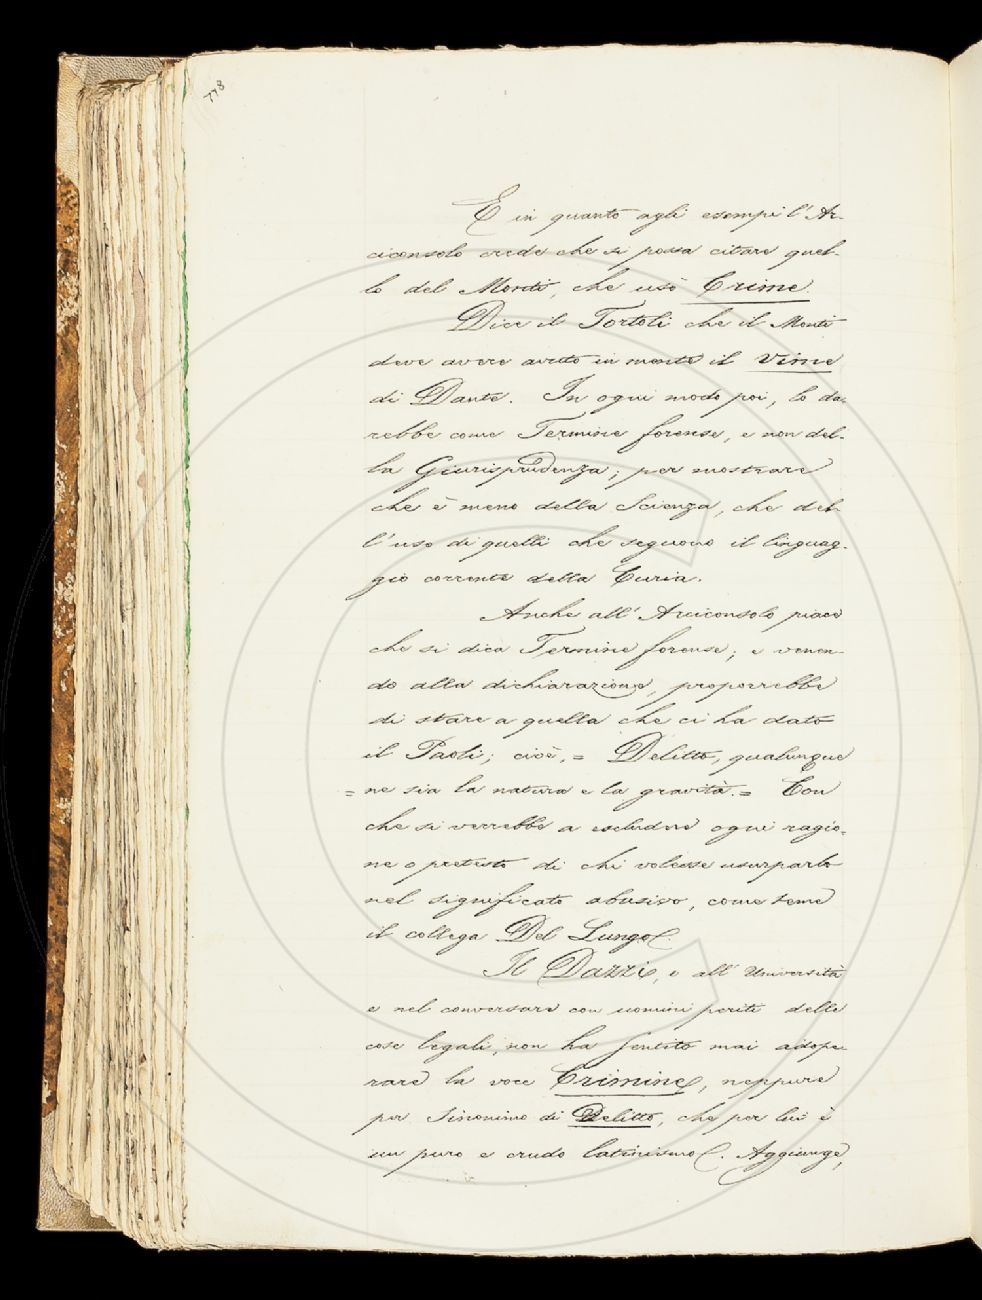 778
E in quanto agli esempi l'Ar-
ciconsolo crede che si possa citare quel-
lo del Monti, che usò Crime.
Dice il Tortoli che il Monti
deve avere avuto in mente il Vime
di Dante. In ogni modo poi, lo da-
rebbe come Termine forense, e non del-
la Giurisprudenza; per mostrare
che è meno della Scienza, che del-
l'uso di quelli che seguono il linguag-
gio corrente della Curia.
Anche all'Arciconsolo piace
che si dica Termine forense; e venen-
do alla dichiarazione, proporrebbe
di stare a quella che ci ha dato
il Paoli; cioè, = Delitto, qualunque
= ne sia la natura e la gravità. = Con
che si verrebbe a escludere ogni ragio-
ne o pretesto di chi volesse usurparlo
nel significato abusivo, come teme
il collega Del Lungo.
Il Dazzi, e all'Università
e nel conversare con uomini periti delle
cose legali, non ha sentito mai adope-
rare la voce Crimine, neppure
per Sinonimo di Delitto, che per lui è
un puro e crudo latinismo. Aggiunge,